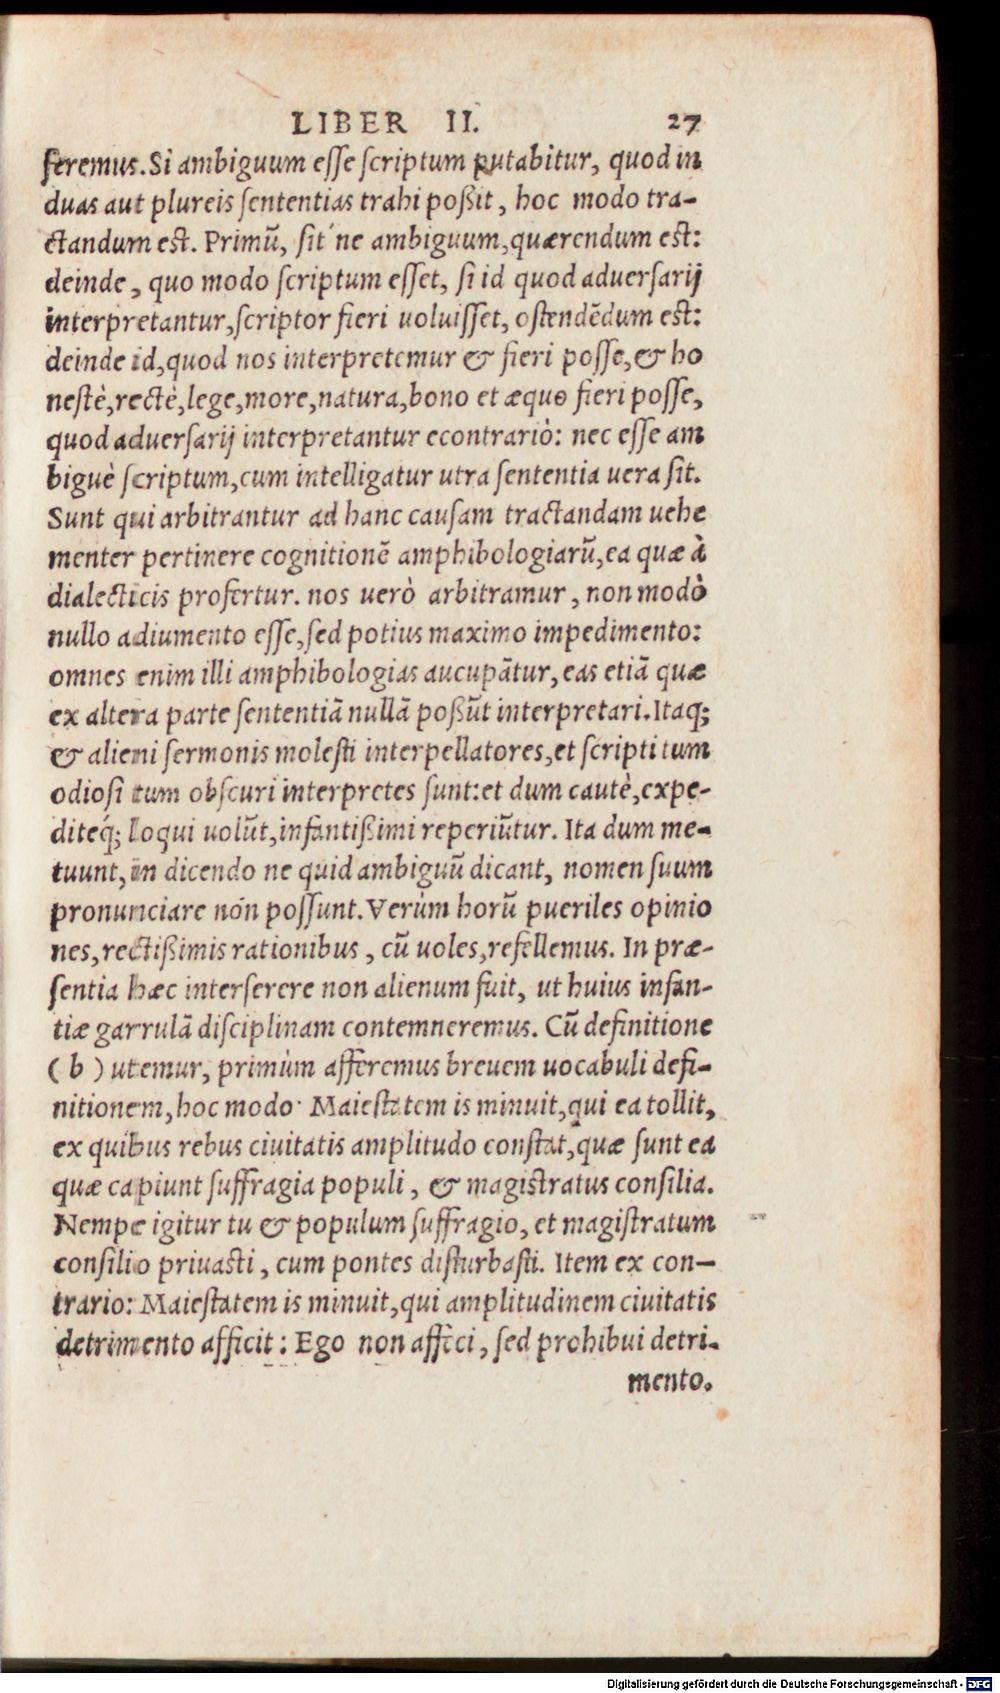 LIBER II. 27
feremus. Si ambiguum esse scriptum putabitur, quod in
duas aut plureis sententias trahi poßit, hoc modo tra-
ctandum est. Primũ, sit'ne ambiguum, quærendum est:
deinde, quo modo scriptum esset, si id quod aduersarij
interpretantur, scriptor fieri uoluisset, ostendẽdum est:
deinde id, quod nos interpretemur & fieri posse, & ho
nestè, rectè, lege, more, natura, bono et æquo fieri posse,
quod aduersarij interpretantur econtrariò: nec esse am
biguè scriptum, cum intelligatur utra sententia uera sit.
Sunt qui arbitrantur ad hanc causam tractandam uehe
menter pertinere cognitionẽ amphibologiarũ, ea quæ à
dialecticis profertur. nos uerò arbitramur, non modò
nullo adiumento esse, sed potius maximo impedimento:
omnes enim illi amphibologias aucupãtur, eas etiã quæ
ex altera parte sententiã nullã poßũt interpretari. Itaq;
& alieni sermonis molesti interpellatores, et scripti tum
odiosi tum obscuri interpretes sunt: et dum cautè, expe-
diteq́; loqui uolũt, infantißimi reperiũtur. Ita dum me-
tuunt, in dicendo ne quid ambiguũ dicant, nomen suum
pronunciare non possunt. Verùm horũ pueriles opinio
nes, rectißimis rationibus, cũ uoles, refellemus. In præ-
sentia hæc interserere non alienum fuit, ut huius infan-
tiæ garrulã disciplinam contemneremus. Cũ definitione
( b ) utemur, primùm afferemus breuem uocabuli defi-
nitionem, hoc modo· Maiestatem is minuit, qui ea tollit,
ex quibus rebus ciuitatis amplitudo constat, quæ sunt ea
quæ capiunt suffragia populi, & magistratus consilia.
Nempe igitur tu & populum suffragio, et magistratum
consilio priuasti, cum pontes disturbasti. Item ex con-
trario: Maiestatem is minuit, qui amplitudinem ciuitatis
detrimento afficit: Ego non affeci, sed prohibui detri-
mento.
Digitalisierung gefördert durch die Deutsche Forschungsgemeinschaft - DFG